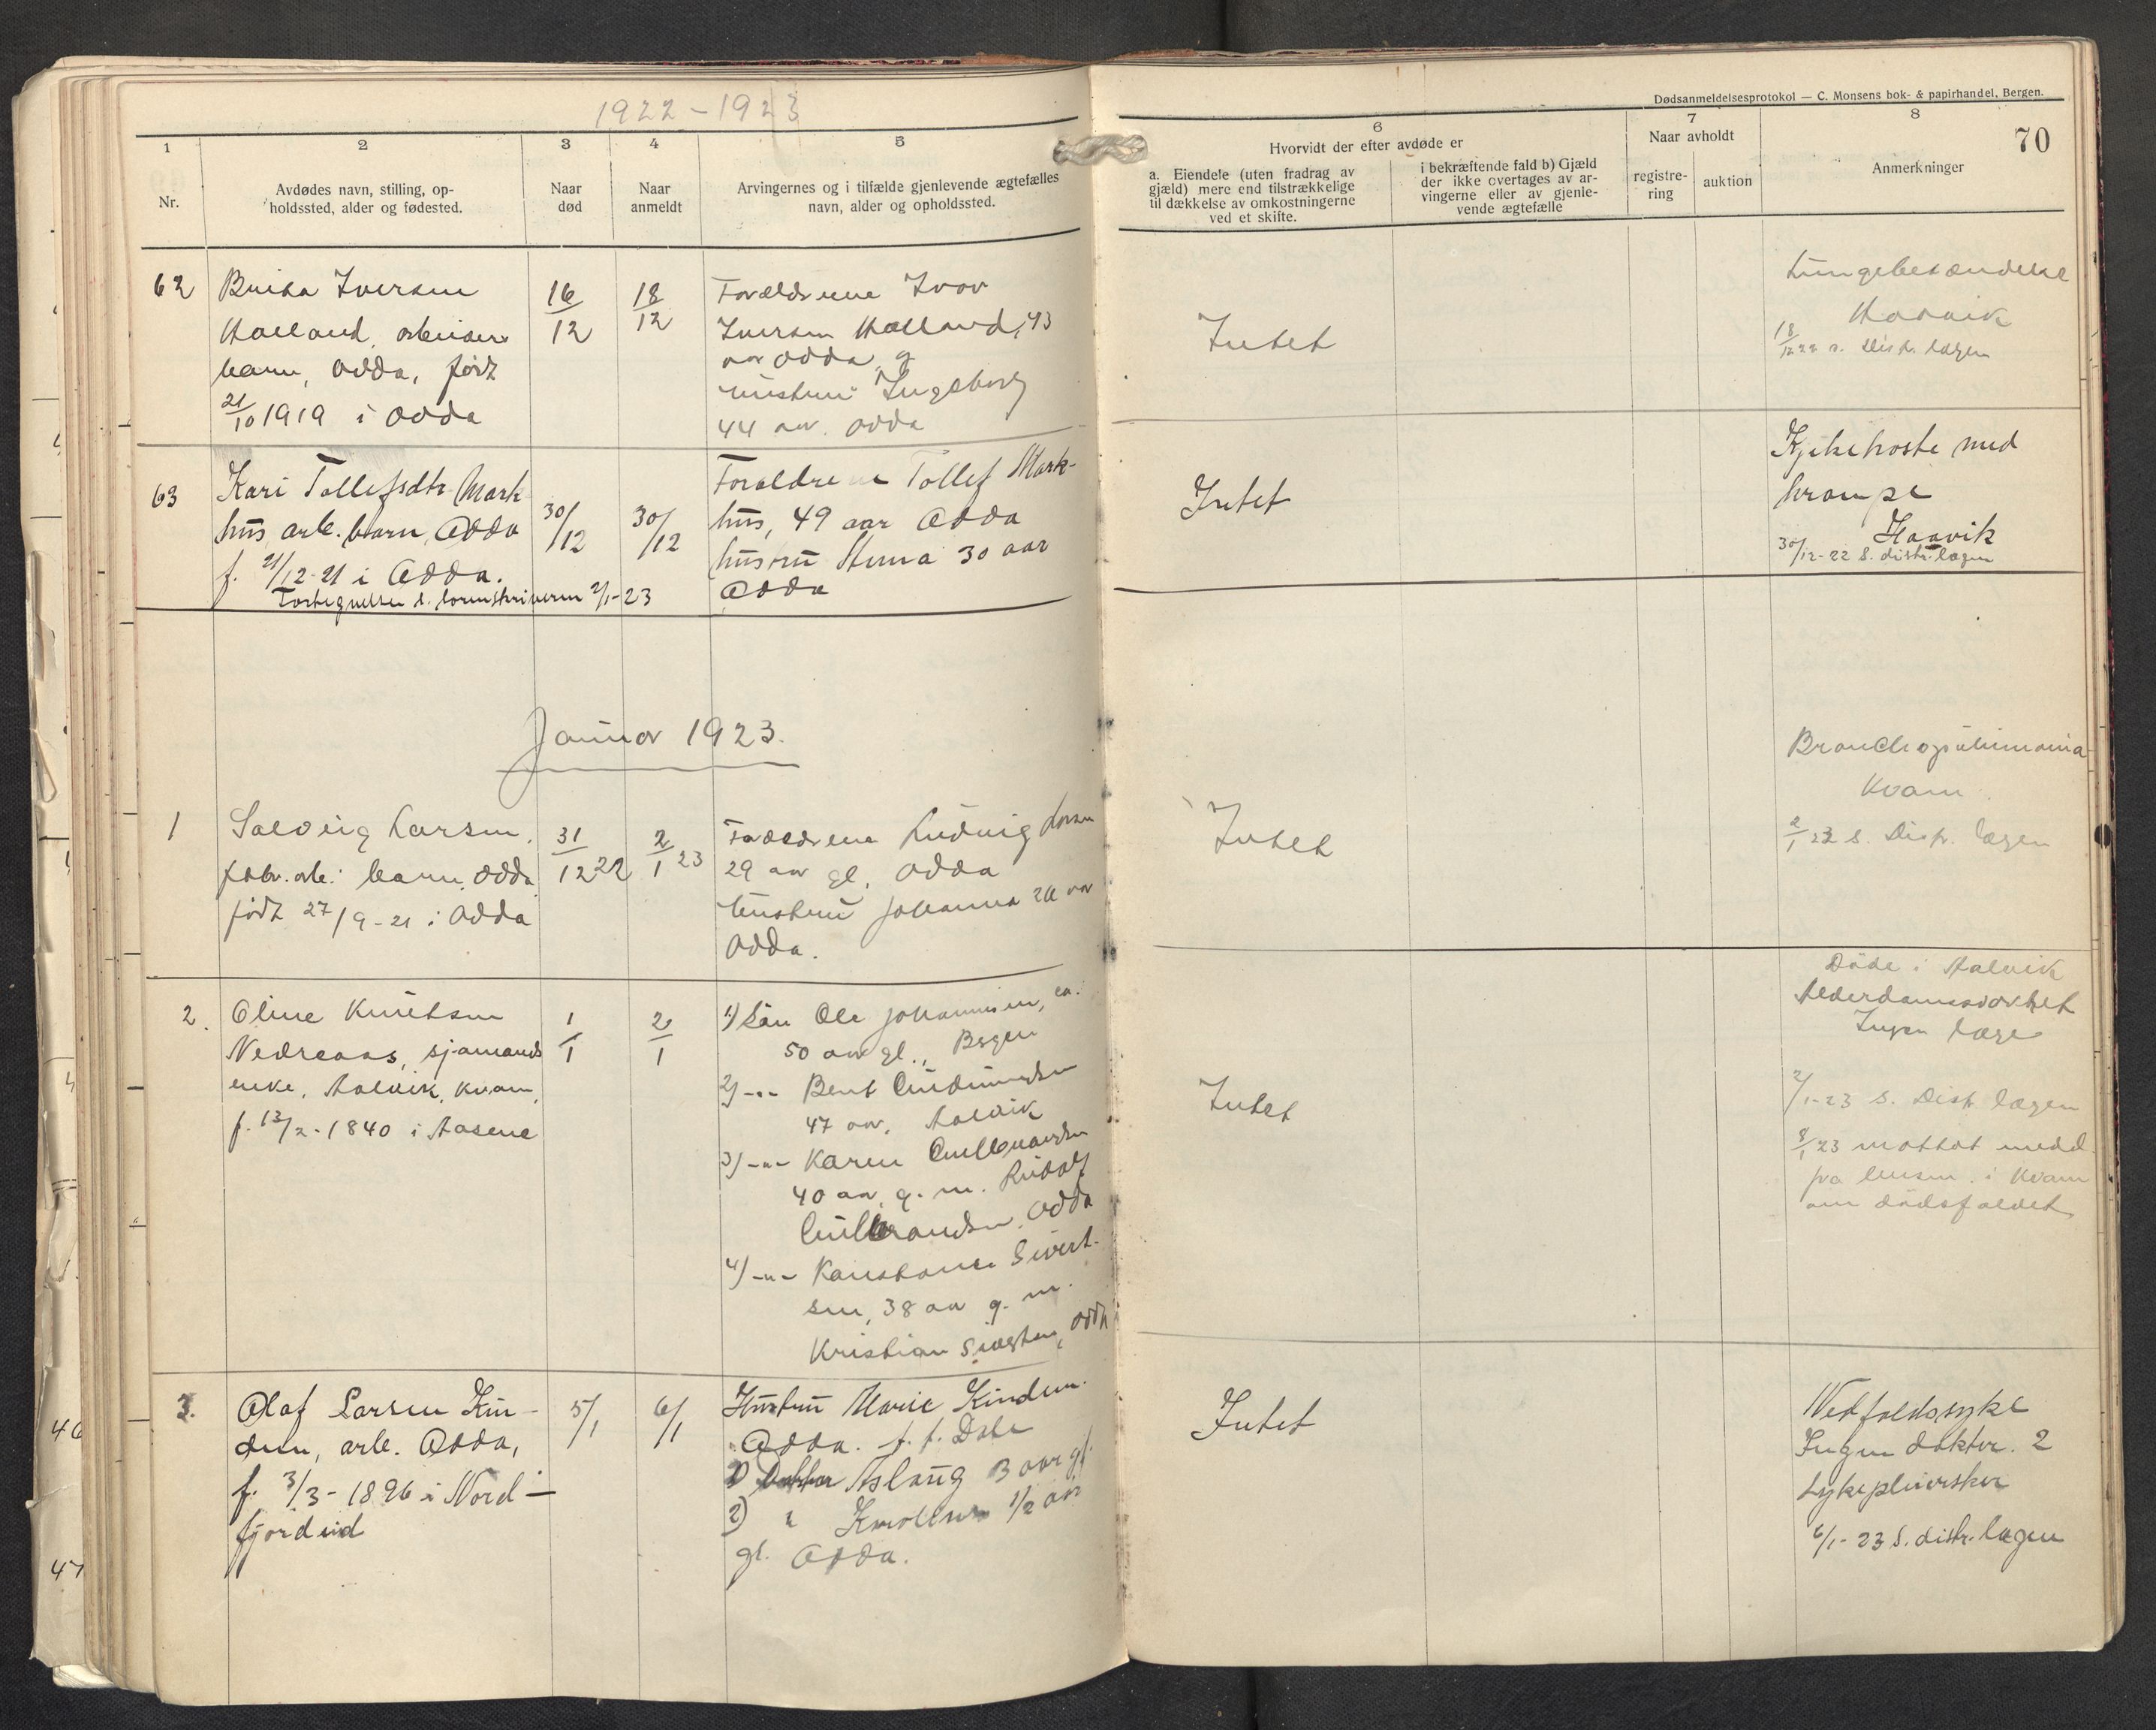 1922-1923
Dødsanmeldelsesprotokol — C. Monsens bok- & papirhandel, Bergen.
70
1 2 3 4 5 6 7 8
Nr.
Avdødes navn, stilling, op-
holdssted, alder og fødested.
Naar
død
Naar
anmeldt
Arvingernes og i tilfælde gjenlevende ægtefælles
navn, alder og opholdssted.
Hvorvidt der efter avdøde er
a. Eiendele (uten fradrag av
gjæld) mere end tilstrækkelige
til dækkelse av omkostningerne
ved et skifte.
i bekræftende fald b) Gjæld
der ikke overtages av ar-
vingerne eller av gjenle-
vende ægtefælle
Naar avholdt
registre-
ring
auktion
Anmerkninger
62
Brita Iversen
Holland, arbeiser
barn, Odda, født
21/10 1919 i Odda
16/12
18/12
Forældrene Ivar
Iversen Holland, 43
aar Odda, g
hustru Ingeborg
44 aar. Odda
Intet
Lungebetændelse
Haavik
18/12 22 s. Distr. lægen
63
Kari Tollefsdtr. Mark
hus arb. barn, Odda
f. 21/12-21 i Odda.
Fortegnelse s. sorenskriveren 2/1-23
30/12
30/12
Forældrene Tollef Mark-
hus, 49 aar Odda
hustru Anna 30 aar
Odda
Intet
Kikhoste med
krampe
Haavik
30/12-22 S. distr. lægen
Januar 1923.
1
Solveig Larsen,
fabr. arb. barn, Odda
født 27/9-21 i Odda
31/12 22
2/1 23
Forældrene Ludvig Larsen
29 aar gl. Odda
hustru Johanna 26 aar
Odda.
Intet
Kvam
2/1 23 s. Distr. lægen
2.
Oline Knutsen
Nedreaas, sjømands
enke, Aalvik, Kvam,
f. 13/2-1840 i Aasene
1/1
2/1
1) Søn Ole Johannesen, ca.
50 aar gl., Bergen
2) -"- Bernt
47 aar, Aalvik
3) -"- Karen Gulbrandsen
40 aar, g. m. Rudolf
Gulbrandsen, Odda
4) -"- Konstance Sivert-
sen, 38 aar g. m.
Kristian Sivertsen, Odda
Intet
Døde i Aalvik
Alderdomssvakhet
Ingen læge
2/1-23 S. Distr. lægen
8/1 23 mottat medd.
fra lensm. i Kvam
om dødsfaldet
3.
Olaf Larsen Kin-
dem, arb. Odda,
f. 3/3-1896 i Nord-
fjordeid
5/1
6/1
Hustru Marie Kindem
Odda. f. f. Dale
1) Datter Aslaug 3 aar gl.
2) " 1/2 aar
gl. Odda.
Intet
Nedfaldssyke
Ingen doktor. 2
sykepleiersker
6/1-23 S. distr. lægen
46
47